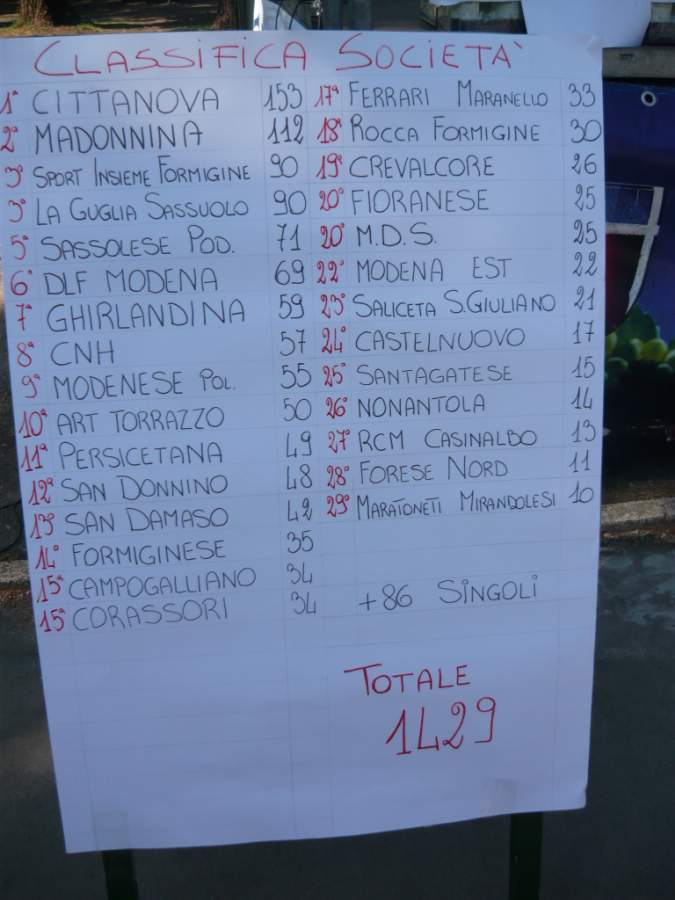 CLASSIFICA SOCIETA'
1° CITTANOVA 153
2° MADONNINA 112
3° SPORT INSIEME FORMIGINE 90
3° LA GUGLIA SASSUOLO 90
5° SASSOLESE POD. 71
6° DLF MODENA 69
7° GHIRLANDINA 59
8° CNH 57
9° MODENESE POL. 55
10° ART TORRAZZO 50
11° PERSICETANA 49
12° SAN DONNINO 48
13° SAN DAMASO 42
14° FORMIGINESE 35
15° CAMPOGALLIANO 34
15° CORASSORI 34
17° FERRARI MARANELLO 33
18° ROCCA FORMIGINE 30
19° CREVALCORE 26
20° FIORANESE 25
20° M.D.S. 25
22° MODENA EST 22
23° SALICETA S.GIULIANO 21
24° CASTELNUOVO 17
25° SANTAGATESE 15
26° NONANTOLA 14
27° RCM CASINALBO 13
28° FORESE NORD 11
29° MARATONETI MIRANDOLESI 10
+86 SINGOLI
TOTALE
1429